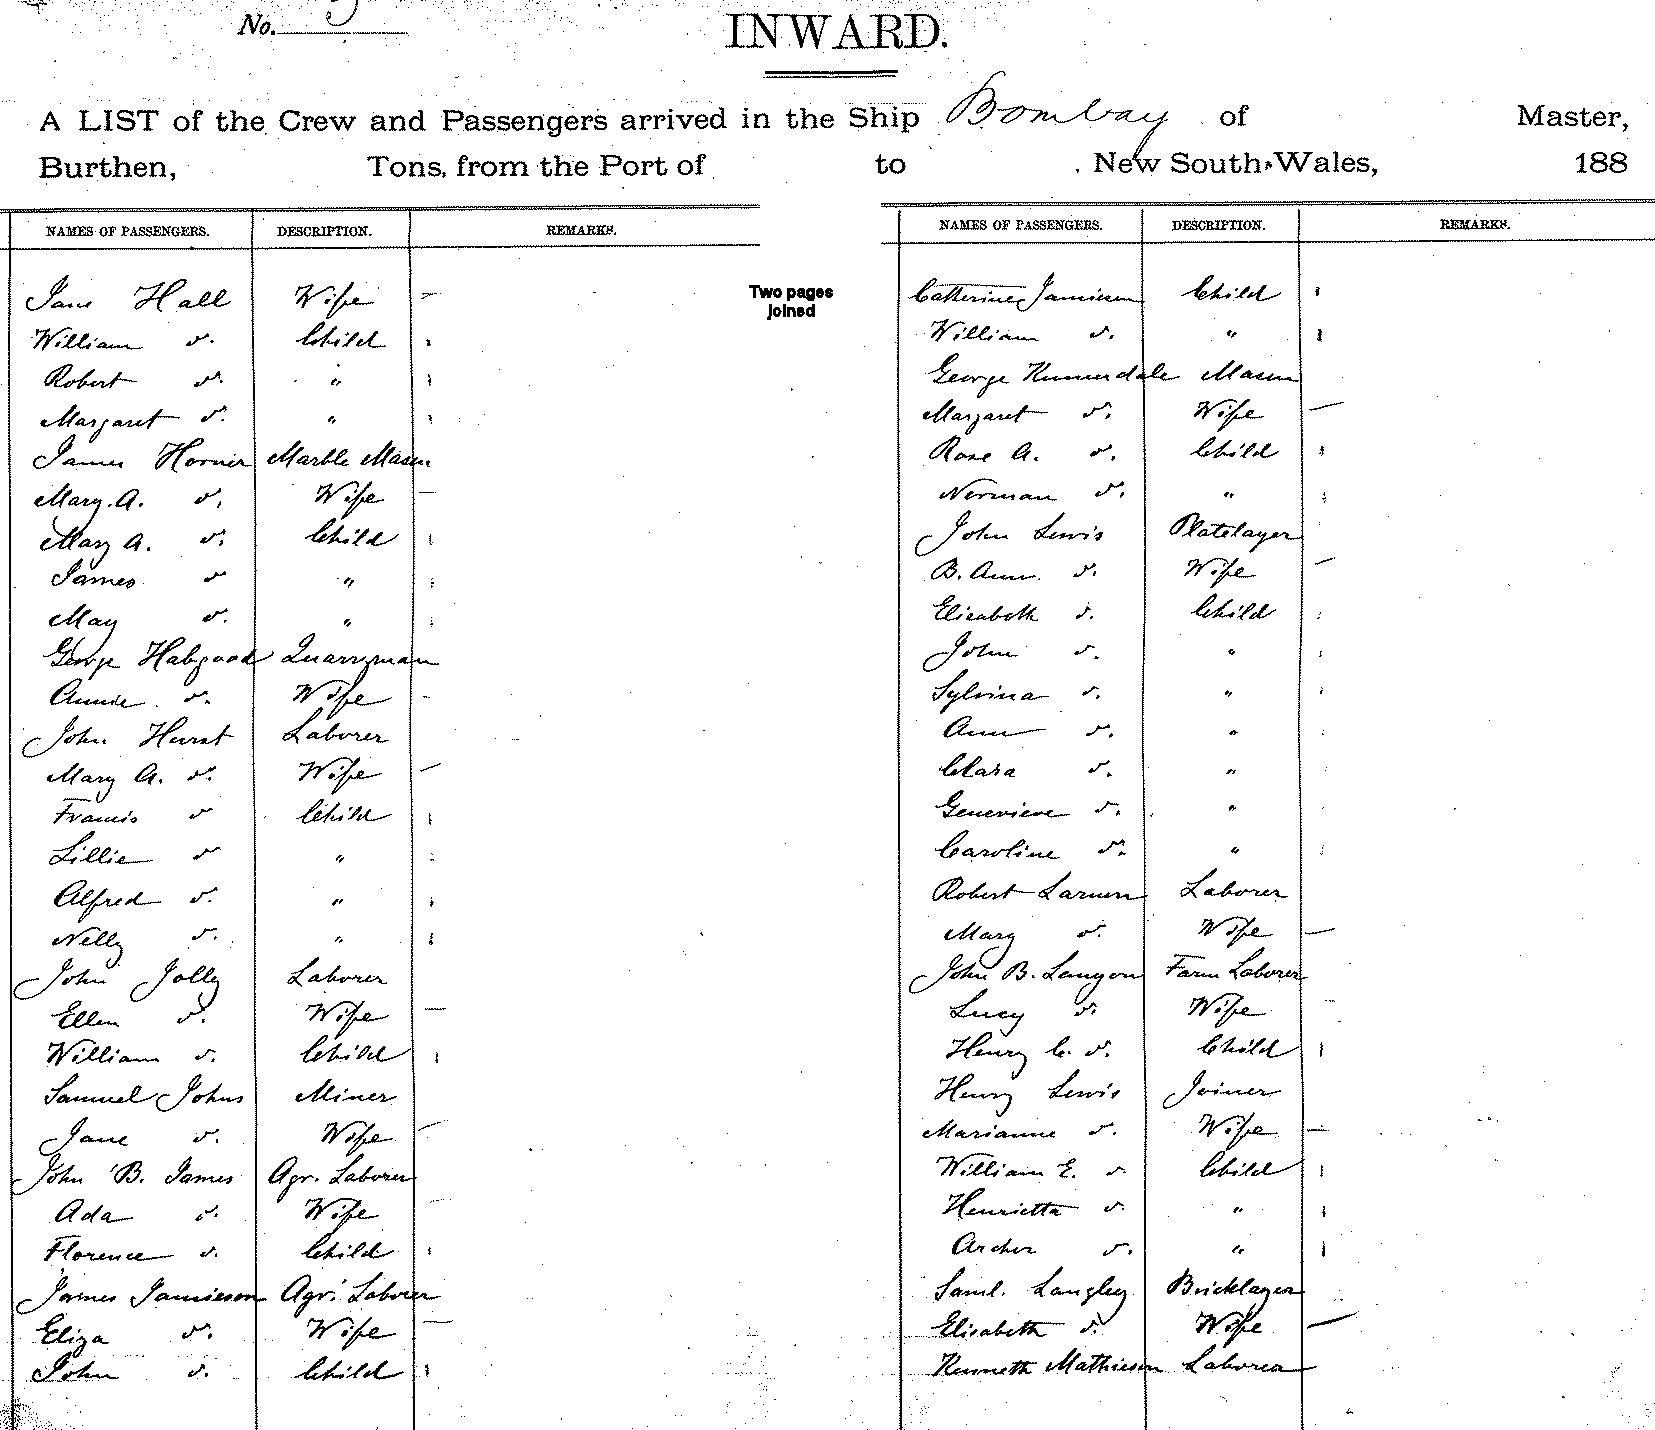 No. 5
INWARD.
A LIST of the Crew and Passengers arrived in the Ship Bombay of Master,
Burthen, Tons, from the Port of to New South Wales, 188
NAMES OF PASSENGERS. DESCRIPTION. REMARKS.
Jane Hall Wife —
William do. Child
Robert do. "
Margaret do. "
James Horner Marble Mason
Mary. A. do. Wife —
Mary A. do. Child
James do "
May do. "
George Habgood Quarryman
Annie do. Wife -
John Hurst Laborer
Mary A. do. Wife —
Francis do Child
Lillie do "
Alfred do. "
Nelly do. "
John Jolly Laborer
Ellen do. Wife —
William do. Child
Samuel Johns Miner
Jane do. Wife —
John B. James Agr. Laborer
Ada do. Wife —
Florence do. Child
James Jamieson Agr. Laborer
Eliza do. Wife —
John do. Child
Two pages
joined
NAMES OF PASSENGERS. DESCRIPTION. REMARKS.
Catherine Jamieson Child
William do. "
George Mason
Margaret do. Wife —
Rose A. do. Child
Norman do. "
John Lewis Platelayer
B. Ann. do. Wife —
Elisabeth do. Child
John do. "
Sylvina do. "
Ann do. "
Clara do. "
Genevieve do. "
Caroline do. "
Robert Larnen Laborer
Mary do. Wife —
John B. Langon Farm Laborer
Lucy do. Wife —
Henry C. do. Child
Henry Lewis Joiner
Marianne do. Wife —
William E. do Child
Henrietta do. "
Archer do. "
Saml. Langley Bricklayer
Elisabeth do. Wife —
Kenneth Mathieson Laborer